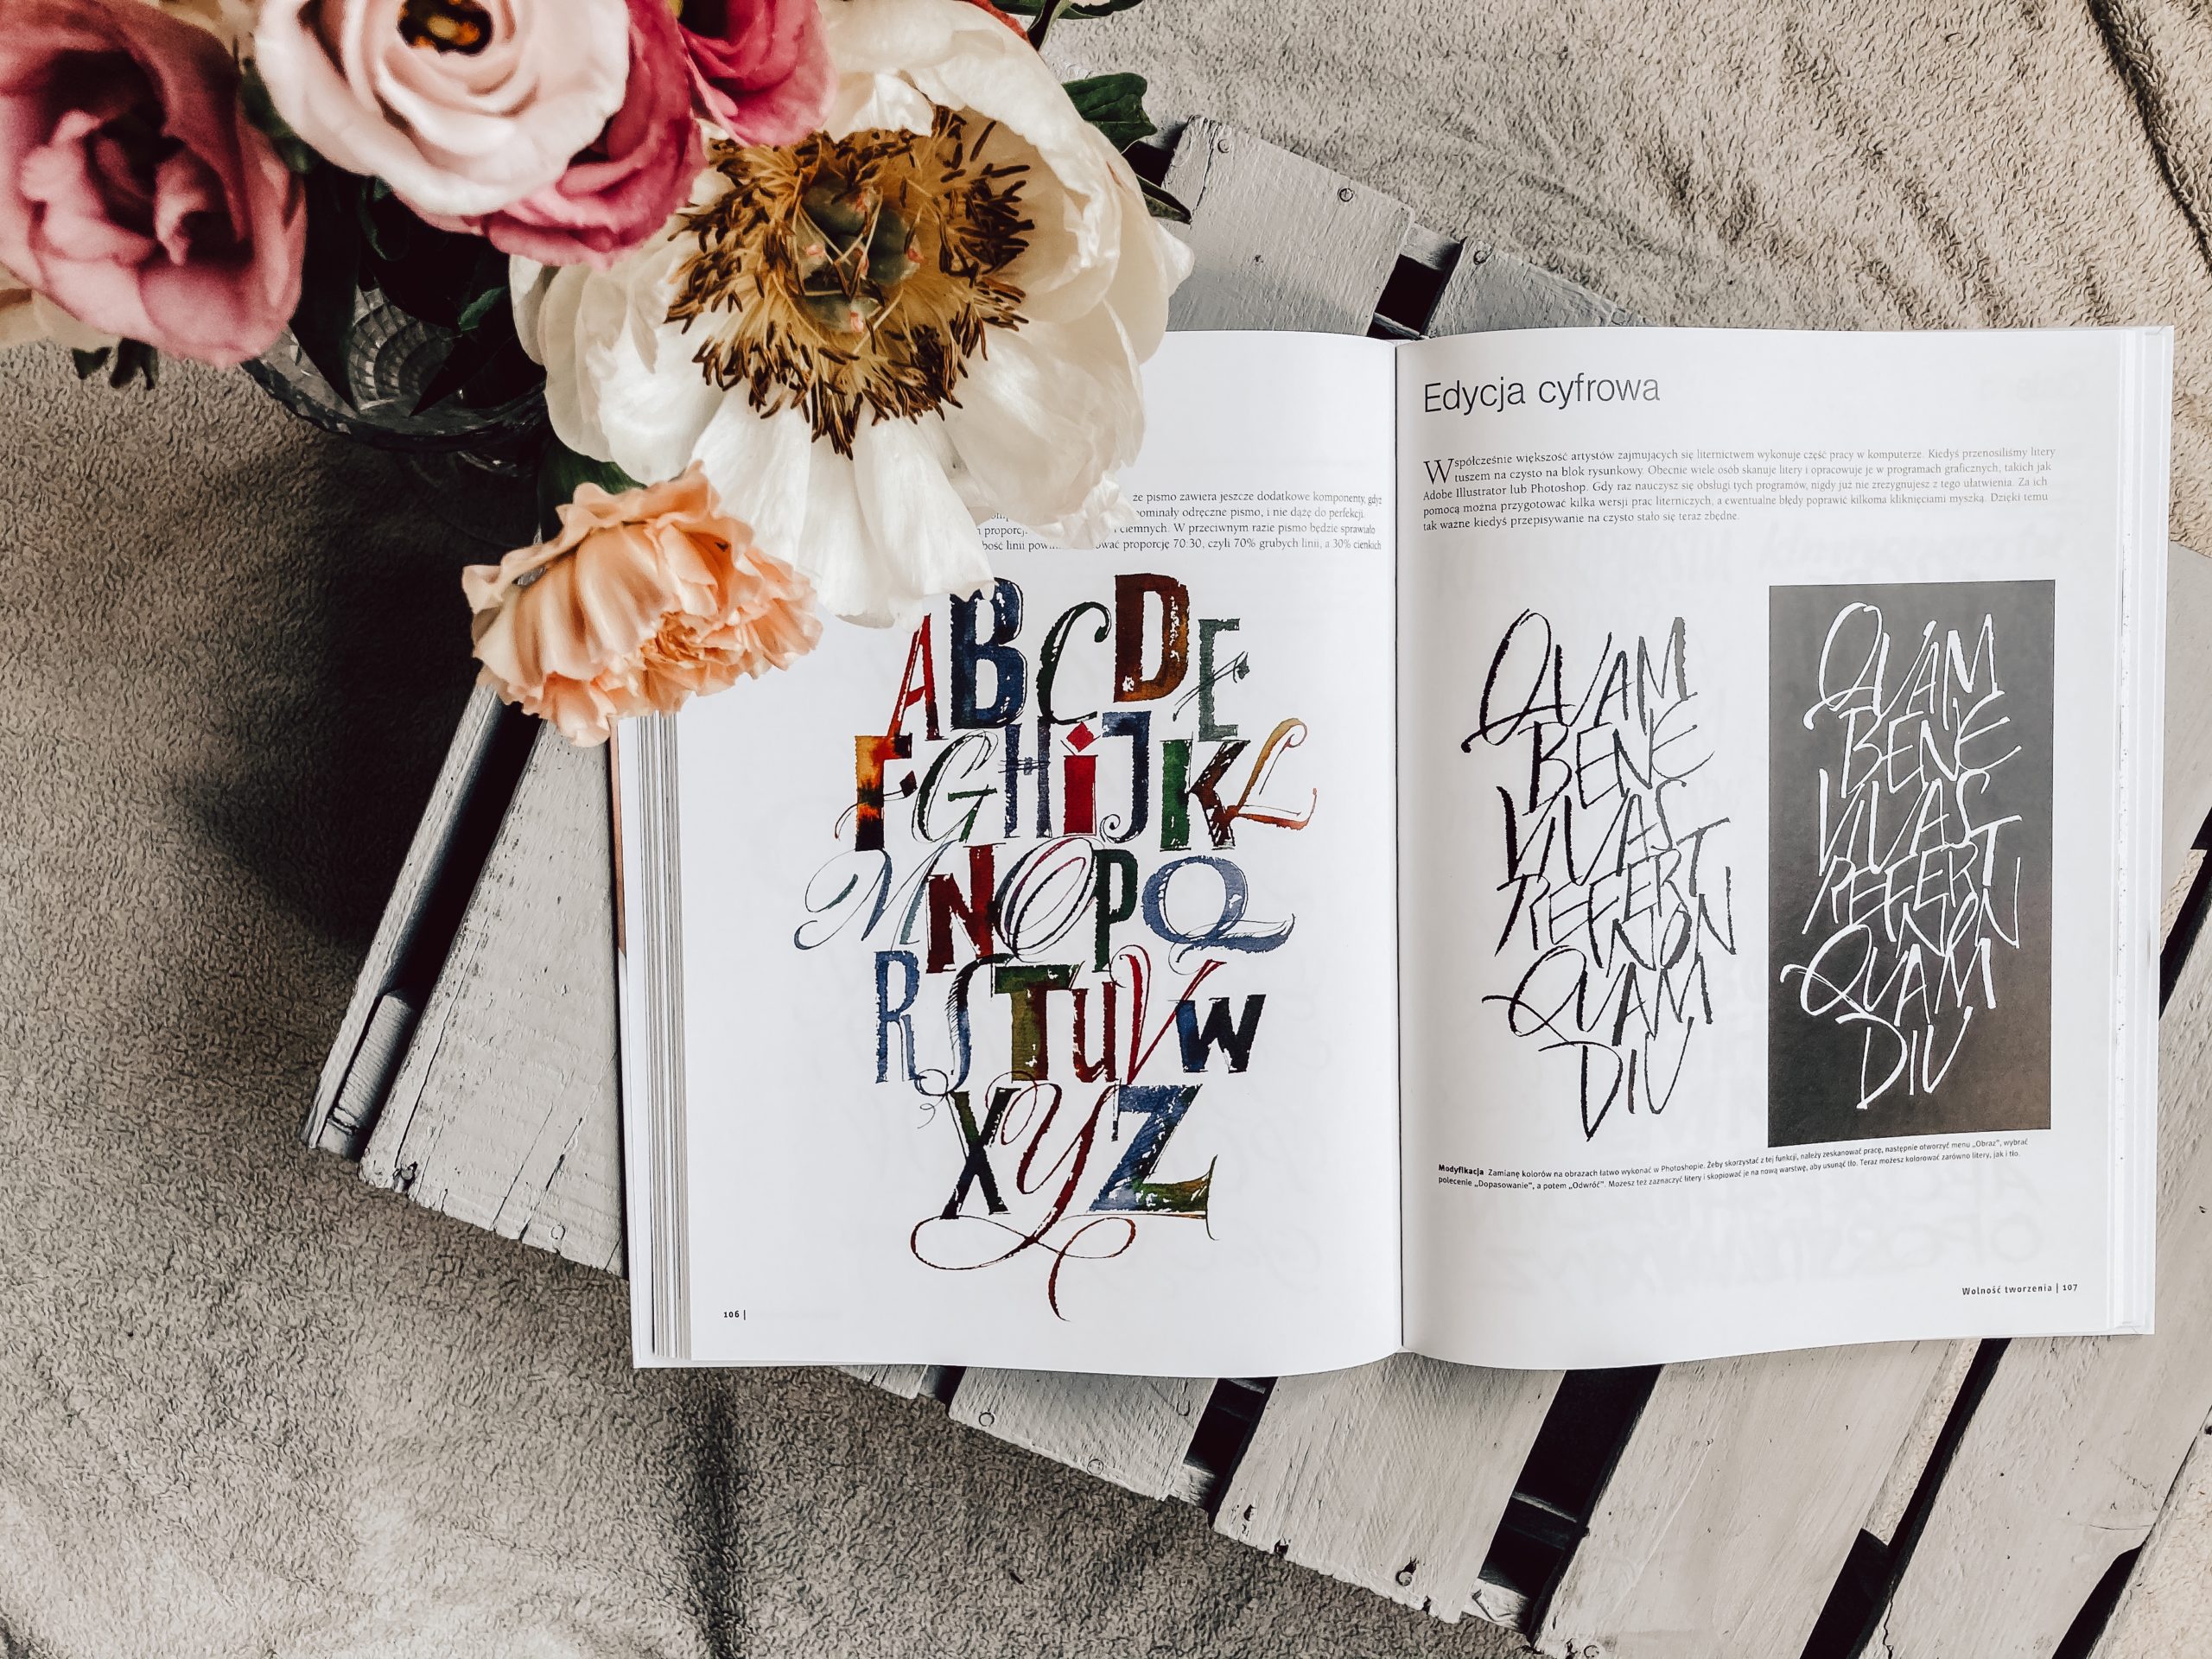 że pismo zawiera jeszcze dodatkowe komponenty, gdyż
pominały odręczne pismo, i nie dążę do perfekcji.
proporcj ciemnych. W przeciwnym razie pismo będzie sprawiało
bość linii pow wać proporcję 70:30, czyli 70% grubych linii, a 30% cienkich
A B C D E
F G H i J K L
M N O P Q
R S T U V W
X Y Z
106 |
Edycja cyfrowa
Współcześnie większość artystów zajmujących się liternictwem wykonuje część pracy w komputerze. Kiedyś przenosiliśmy litery
tuszem na czysto na blok rysunkowy. Obecnie wiele osób skanuje litery i opracowuje je w programach graficznych, takich jak
Adobe Illustrator lub Photoshop. Gdy raz nauczysz się obsługi tych programów, nigdy już nie zrezygnujesz z tego ułatwienia. Za ich
pomocą można przygotować kilka wersji prac literniczych, a ewentualne błędy poprawić kilkoma kliknięciami myszką. Dzięki temu
tak ważne kiedyś przepisywanie na czysto stało się teraz zbędne.
QUAM
BENE
VIVAS
REFERT
NON
QUAM
DIU
QUAM
BENE
VIVAS
REFERT
NON
QUAM
DIU
Modyfikacja Zamianę kolorów na obrazach łatwo wykonać w Photoshopie. Żeby skorzystać z tej funkcji, należy zeskanować pracę, następnie otworzyć menu „Obraz”, wybrać
polecenie „Dopasowanie”, a potem „Odwróć”. Możesz też zaznaczyć litery i skopiować je na nową warstwę, aby usunąć tło. Teraz możesz kolorować zarówno litery, jak i tło.
Wolność tworzenia | 107